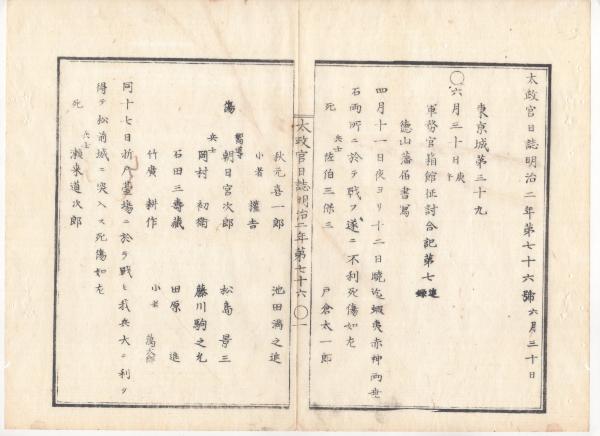 太政官日誌明治二年第七十六號 六月三十日
東京城第三十九
○六月三十日庚午
軍務官箱館征討合記第七 連錄
德山藩届書寫
四月十一日夜ヨリ十二日曉迄蝦夷赤神両
石両所ニ於テ戰フ遂ニ不利死傷如左
死 兵士 佐伯三保三 戸倉太一郎
太政官日誌明治二年第七十六 ○一
秋元喜一郎 池田満之進
小者 權吉
傷 嚮導 朝日宮次郎 松島景三
兵士 岡村初衛 藤川駒之允
石田三壽藏 田原進
竹廣耕作 小者
同十七日折戸臺場ニ於テ戰ヒ我兵大ニ利ヲ
得テ松前城ニ突入ス死傷如左
死 兵士 瀬来道次郎